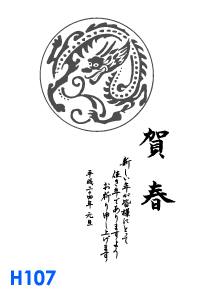 賀春
新しい年が皆様にとって
佳き年でありますよう
お祈り申し上げます
平成二十四年 元旦
H107